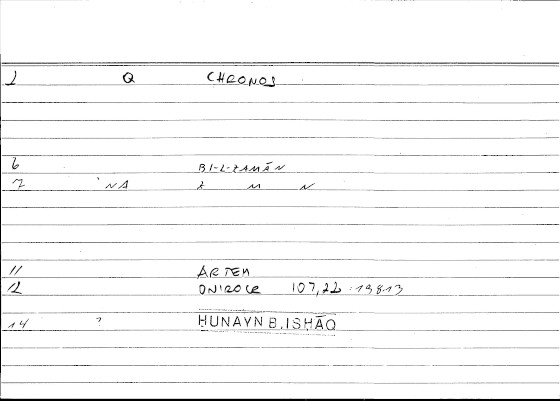 1 Q CHRONOS
6 BI-L-ZAMĀN
7 ʿNA Z M N
11 ARTEM
12 ONIROCR 107,22 : 198.13
14 ? HUNAYN B. ISHĀQ